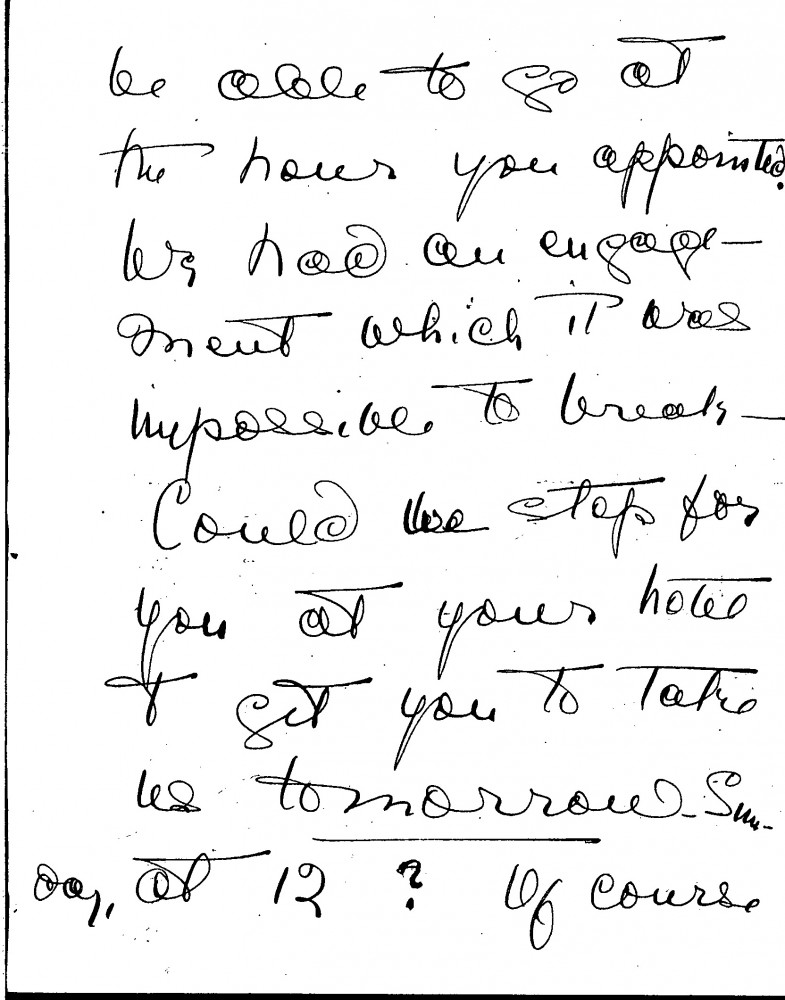 be able to go at
the hour you appointed.
We had an engage-
ment which it was
impossible to break -
Could we stop for
you at your hotel
& get you to take
us tomorrow - Sun-
day, at 12 ? Of course